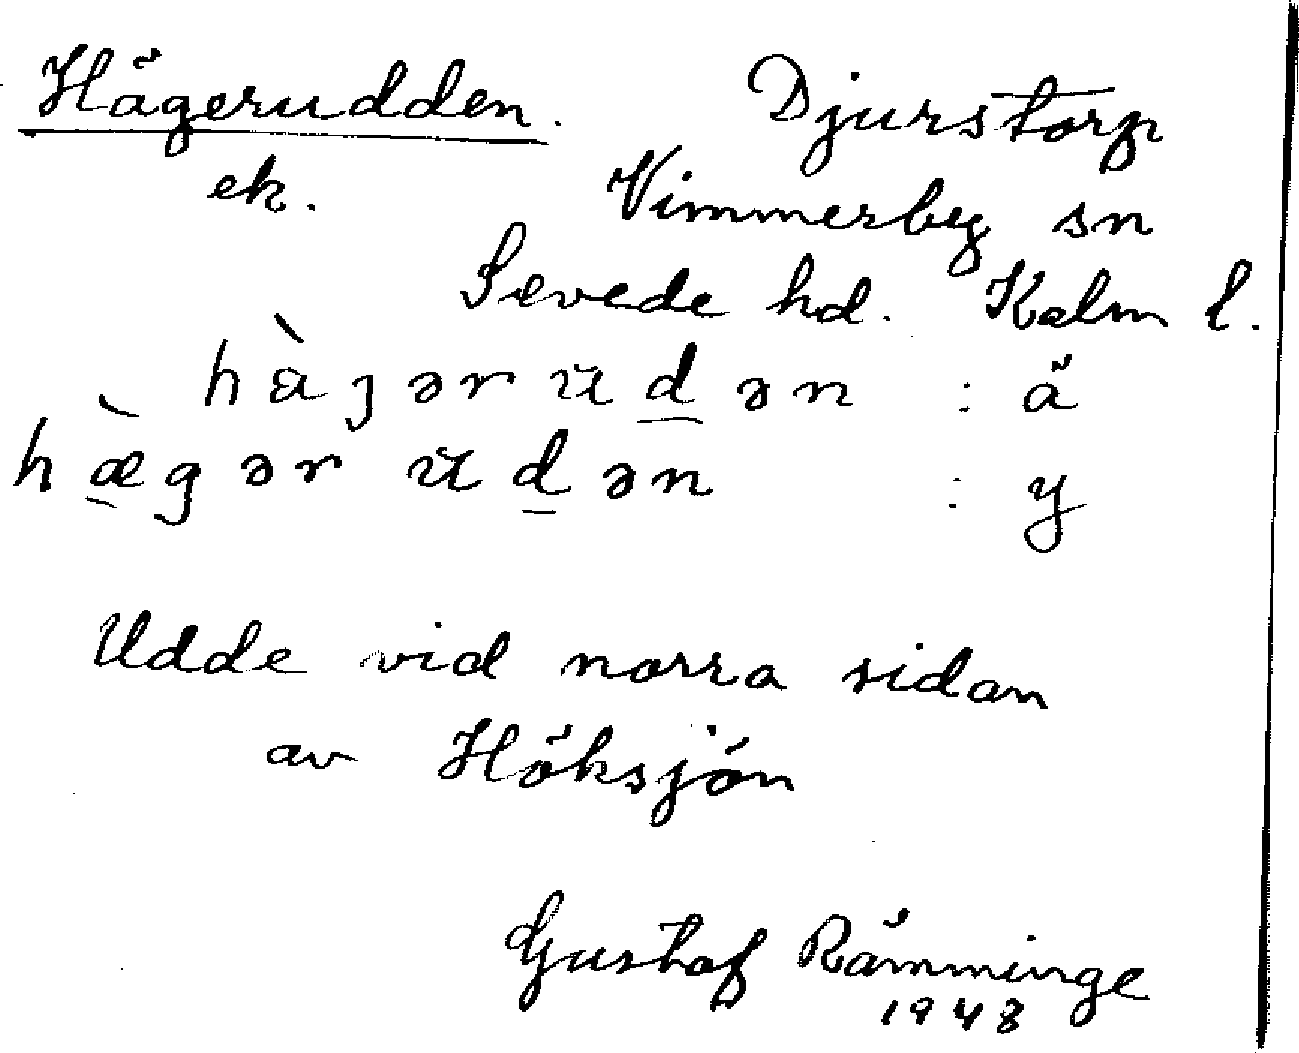 Hägerudden. Djurstorp
ek. Vimmerby sn
Sevede hd. Kalm l.
hàgərŭdən : ä
hæ̀gərŭdən : y
Udde vid norra sidan
av Höksjön
Gustaf Rämminge
1948